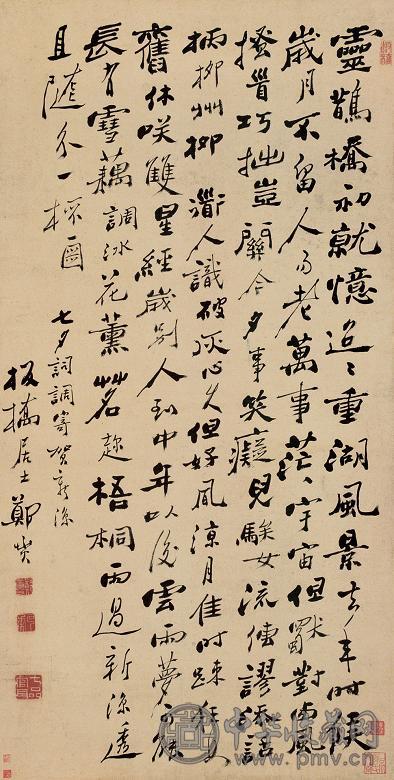 靈鵲橋初就憶迢迢重湖風景去年時候
歲月不留人易老萬事茫茫宇宙但獨對西風
搔首巧拙豈關今夕事笑癡兒騃女流傳謬話
柄柳州柳 道人識破灰心久但好風涼月佳時疎狂如
舊休笑雙星經歲別人到中年以後雲雨夢可曾
長有雪藕調冰花薰茗趁梧桐雨過新涼透
且隨分一
七夕詞調寄賀新涼
板橋居士鄭燮
七品官耳
中华收藏网
www.pmv.cn